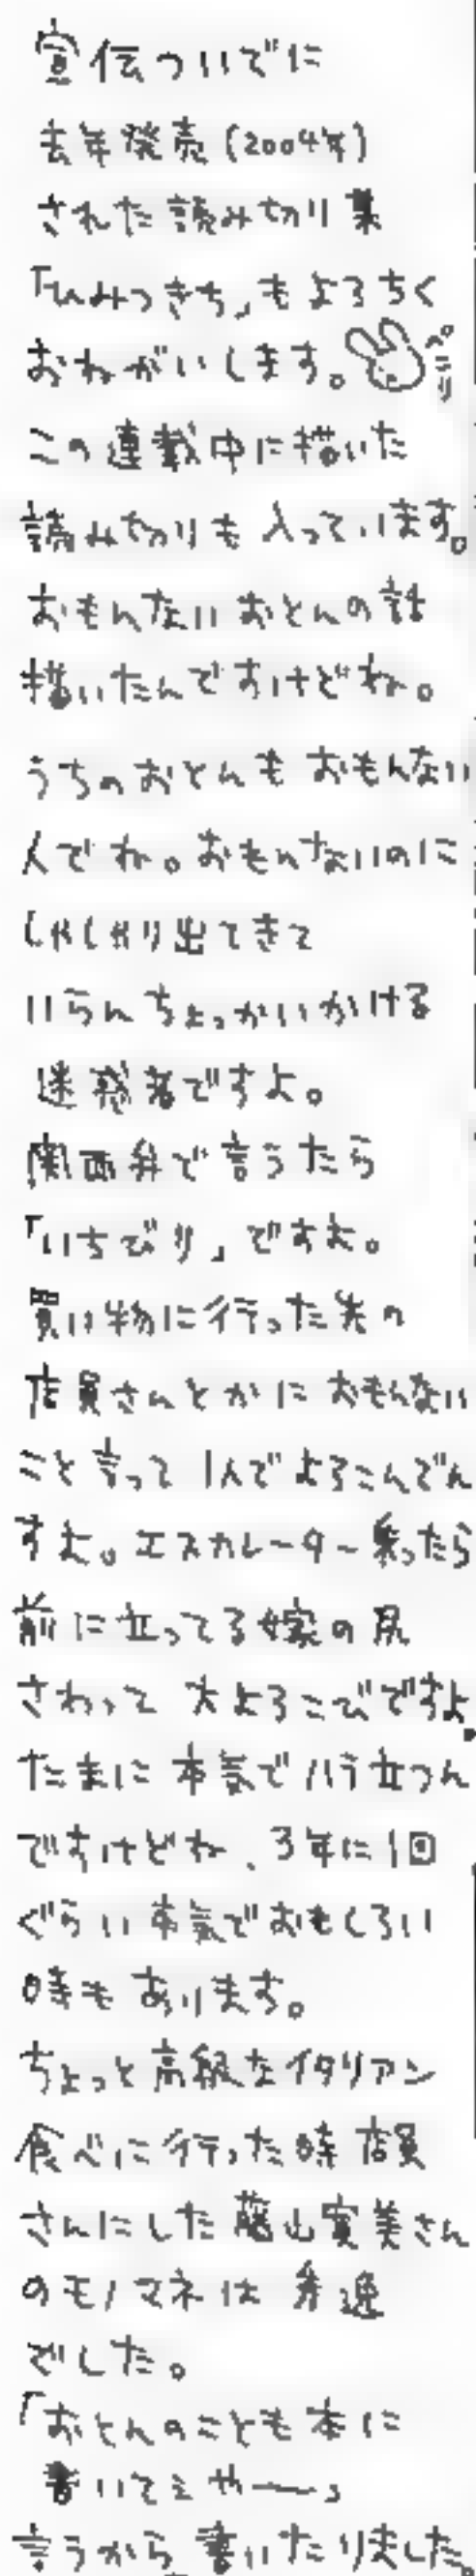 宣伝ついでに
去年発売(2004年)
された読み切り集
「ひみつきち」もよろちく
おねがいします。
ぺこり
この連載中に描いた
読み切りも入っています。
おもんないおとんの話
描いたんですけどね。
うちのおとんもおもんない
人でね。おもんないのに
しゃしゃり出てきて
いらんちょっかいかける
迷惑者ですよ。
関西弁で言うたら
「いちびり」ですわ。
買い物に行った先の
店員さんとかにおもんない
こと言って1人でよろこんでん
すわ。エスカレーター乗ったら
前に立ってる嫁の尻
さわって大よろこびですよ。
たまに本気でハラ立つん
ですけどね、3年に1回
ぐらい本気でおもしろい
時もあります。
ちょっと高級なイタリアン
食べに行った時店員
さんにした藤山寛美さん
のモノマネは秀逸
でした。
「おとんのことも本に
書いてえやー」
言うから書いたりました。